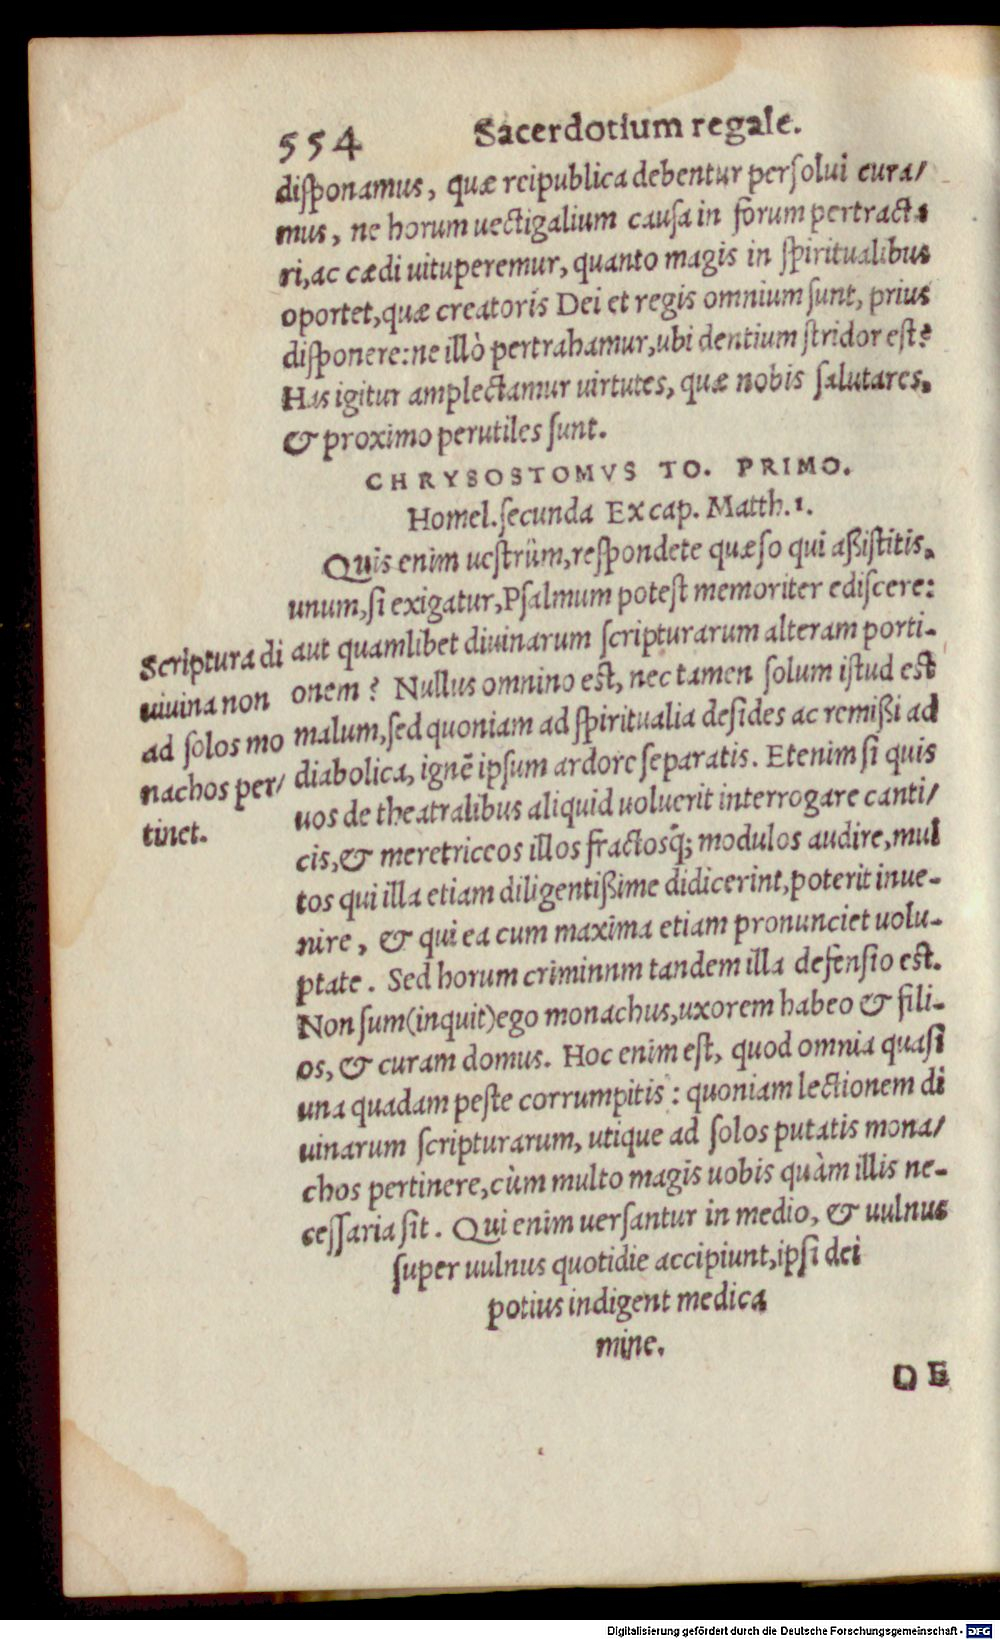 554 Sacerdotium regale.
disponamus, quæ reipublica debentur persolui cura/
mus, ne horum uectigalium causa in forum pertracta
ri, ac cædi uituperemur, quanto magis in spiritualibus
oportet, quæ creatoris Dei et regis omnium sunt, prius
disponere: ne illò pertrahamur, ubi dentium stridor est?
Has igitur amplectamur uirtutes, quæ nobis salutares,
& proximo perutiles sunt.
CHRYSOSTOMVS TO. PRIMO.
Homel. secunda Ex cap. Matth. 1.
Quis enim uestrûm, respondete quæso qui aßistitis,
unum, si exigatur, Psalmum potest memoriter ediscere:
aut quamlibet diuinarum scripturarum alteram porti-
onem? Nullus omnino est, nec tamen solum istud est
malum, sed quoniam ad spiritualia desides ac remißi ad
diabolica, ignē ipsum ardore separatis. Etenim si quis
uos de theatralibus aliquid uoluerit interrogare canti/
cis, & meretriceos illos fractosq́; modulos audire, mul
tos qui illa etiam diligentißime didicerint, poterit inue-
nire, & qui ea cum maxima etiam pronunciet uolu-
ptate. Sed horum criminnm tandem illa defensio est.
Non sum (inquit) ego monachus, uxorem habeo & fili-
os, & curam domus. Hoc enim est, quod omnia quasi
una quadam peste corrumpitis: quoniam lectionem di
uinarum scripturarum, utique ad solos putatis mona/
chos pertinere, cùm multo magis uobis quàm illis ne-
cessaria sit. Qui enim uersantur in medio, & uulnus
super uulnus quotidie accipiunt, ipsi dei
potius indigent medica
mine.
DE
Scriptura di
uiuina non
ad solos mo
nachos per/
tinet.
Digitalisierung gefördert durch die Deutsche Forschungsgemeinschaft - DFG